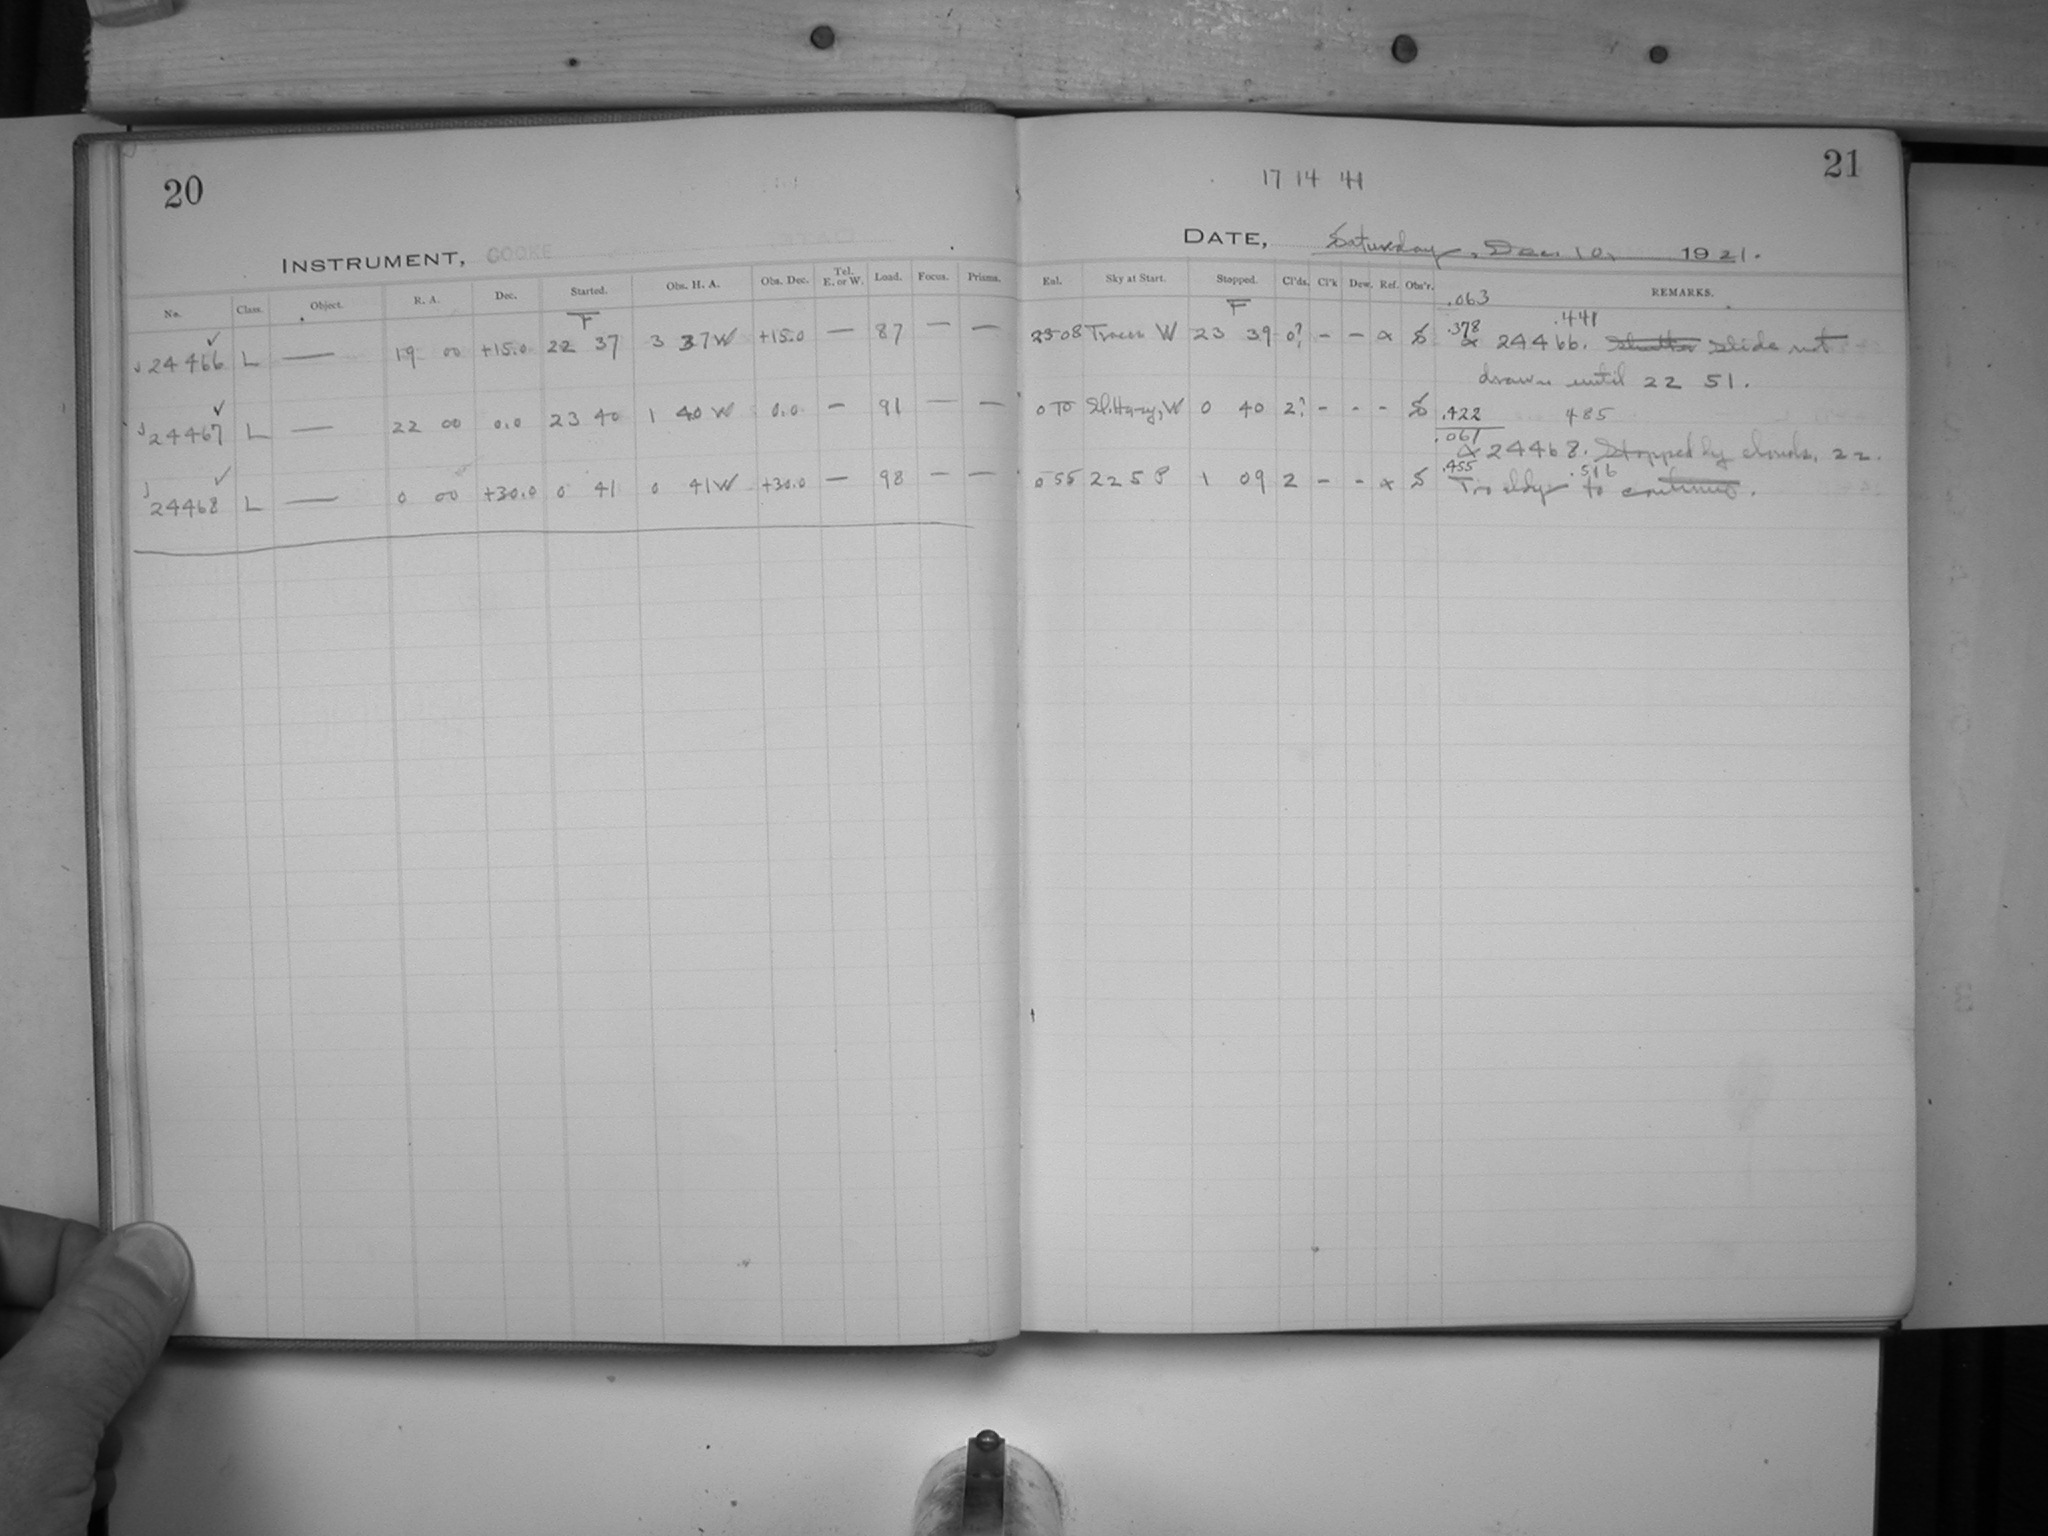 20
INSTRUMENT, COOKE
No. Class. Object. R. A. Dec. Started. Obs. H. A. Obs. Dec. Tel. E. or W. Load. Focus. Prisms.
F
24466 L — 19 00 +15.0 22 37 3 37 W +15.0 — 87 — —
24467 L — 22 00 0.0 23 40 1 40 W 0.0 — 91 — —
24468 L — 0 00 +30.0 0 41 0 41 W +30.0 — 98 — —
21
17 14 41
DATE, Saturday, Dec. 10, 1921.
Sky at Start. Stopped. Cl'ds. Cl'k Dew. Ref. Obs'r. REMARKS.
F .063
.441
23 08 Traces W 23 39 0? - - α S .378
α 24466. Shutter Slide not
drawn until 22 51.
Sl. Hazy, W 0 40 2? - - - S .422 485
.061
α 24468. Stopped by clouds, 22.
0 55 22 5 P 1 09 2 - - α S .455 .516
Too cldy to continue.